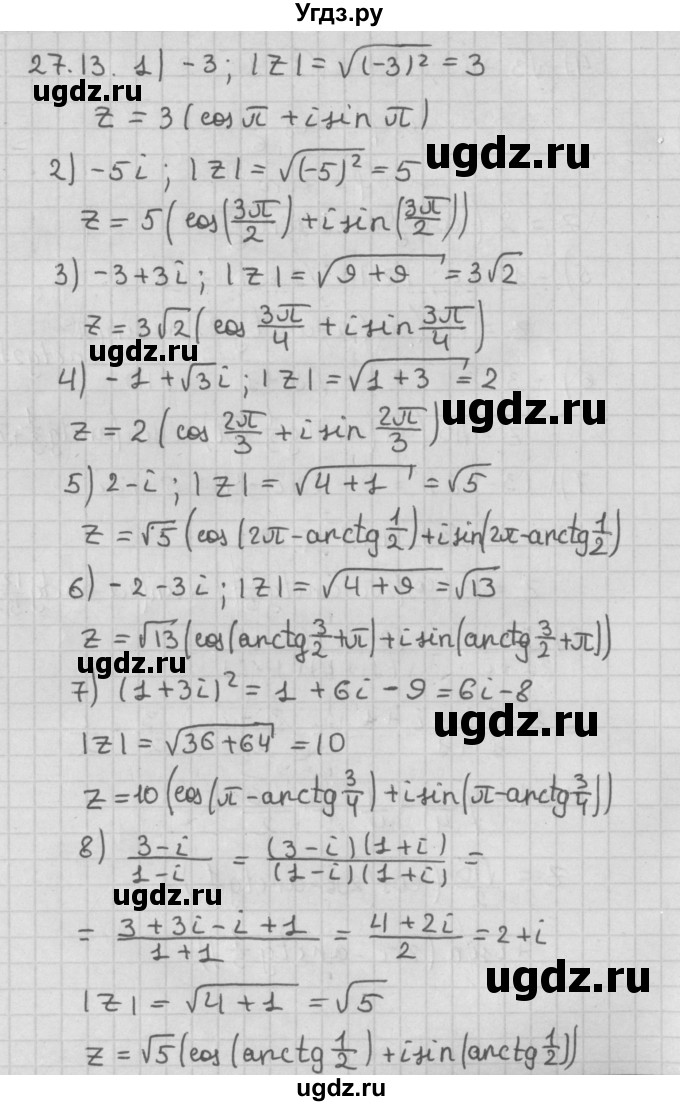 Угдз.ру
27.13. 1) -3; |z| = √(-3)² = 3
ugdz.ru
z = 3(cos π + i sin π)
ugdz.ru
2) -5i; |z| = √(-5)² = 5
z = 5(cos(3π/2) + i sin(3π/2))
3) -3+3i; |z| = √9+9 = 3√2
z = 3√2(cos 3π/4 + i sin 3π/4)
ugdz.ru
4) -1+√3i; |z| = √1+3 = 2
ugdz.ru
z = 2(cos 2π/3 + i sin 2π/3)
5) 2-i; |z| = √4+1 = √5
z = √5(cos(2π-arctg 1/2)+i sin(2π-arctg 1/2)
6) -2-3i; |z| = √4+9 = √13
z = √13(cos(arctg 3/2+π)+i sin(arctg 3/2+π))
ugdz.ru
7) (1+3i)² = 1+6i-9 = 6i-8
ugdz.ru
|z| = √36+64 = 10
z = 10(cos(π-arctg 3/4)+i sin(π-arctg 3/4))
8) 3-i/1-i = (3-i)(1+i)/(1-i)(1+i) =
ugdz.ru
= 3+3i-i+1/1+1 = 4+2i/2 = 2+i
|z| = √4+1 = √5
ugdz.ru
z = √5(cos(arctg 1/2)+i sin(arctg 1/2))
ugdz.ru